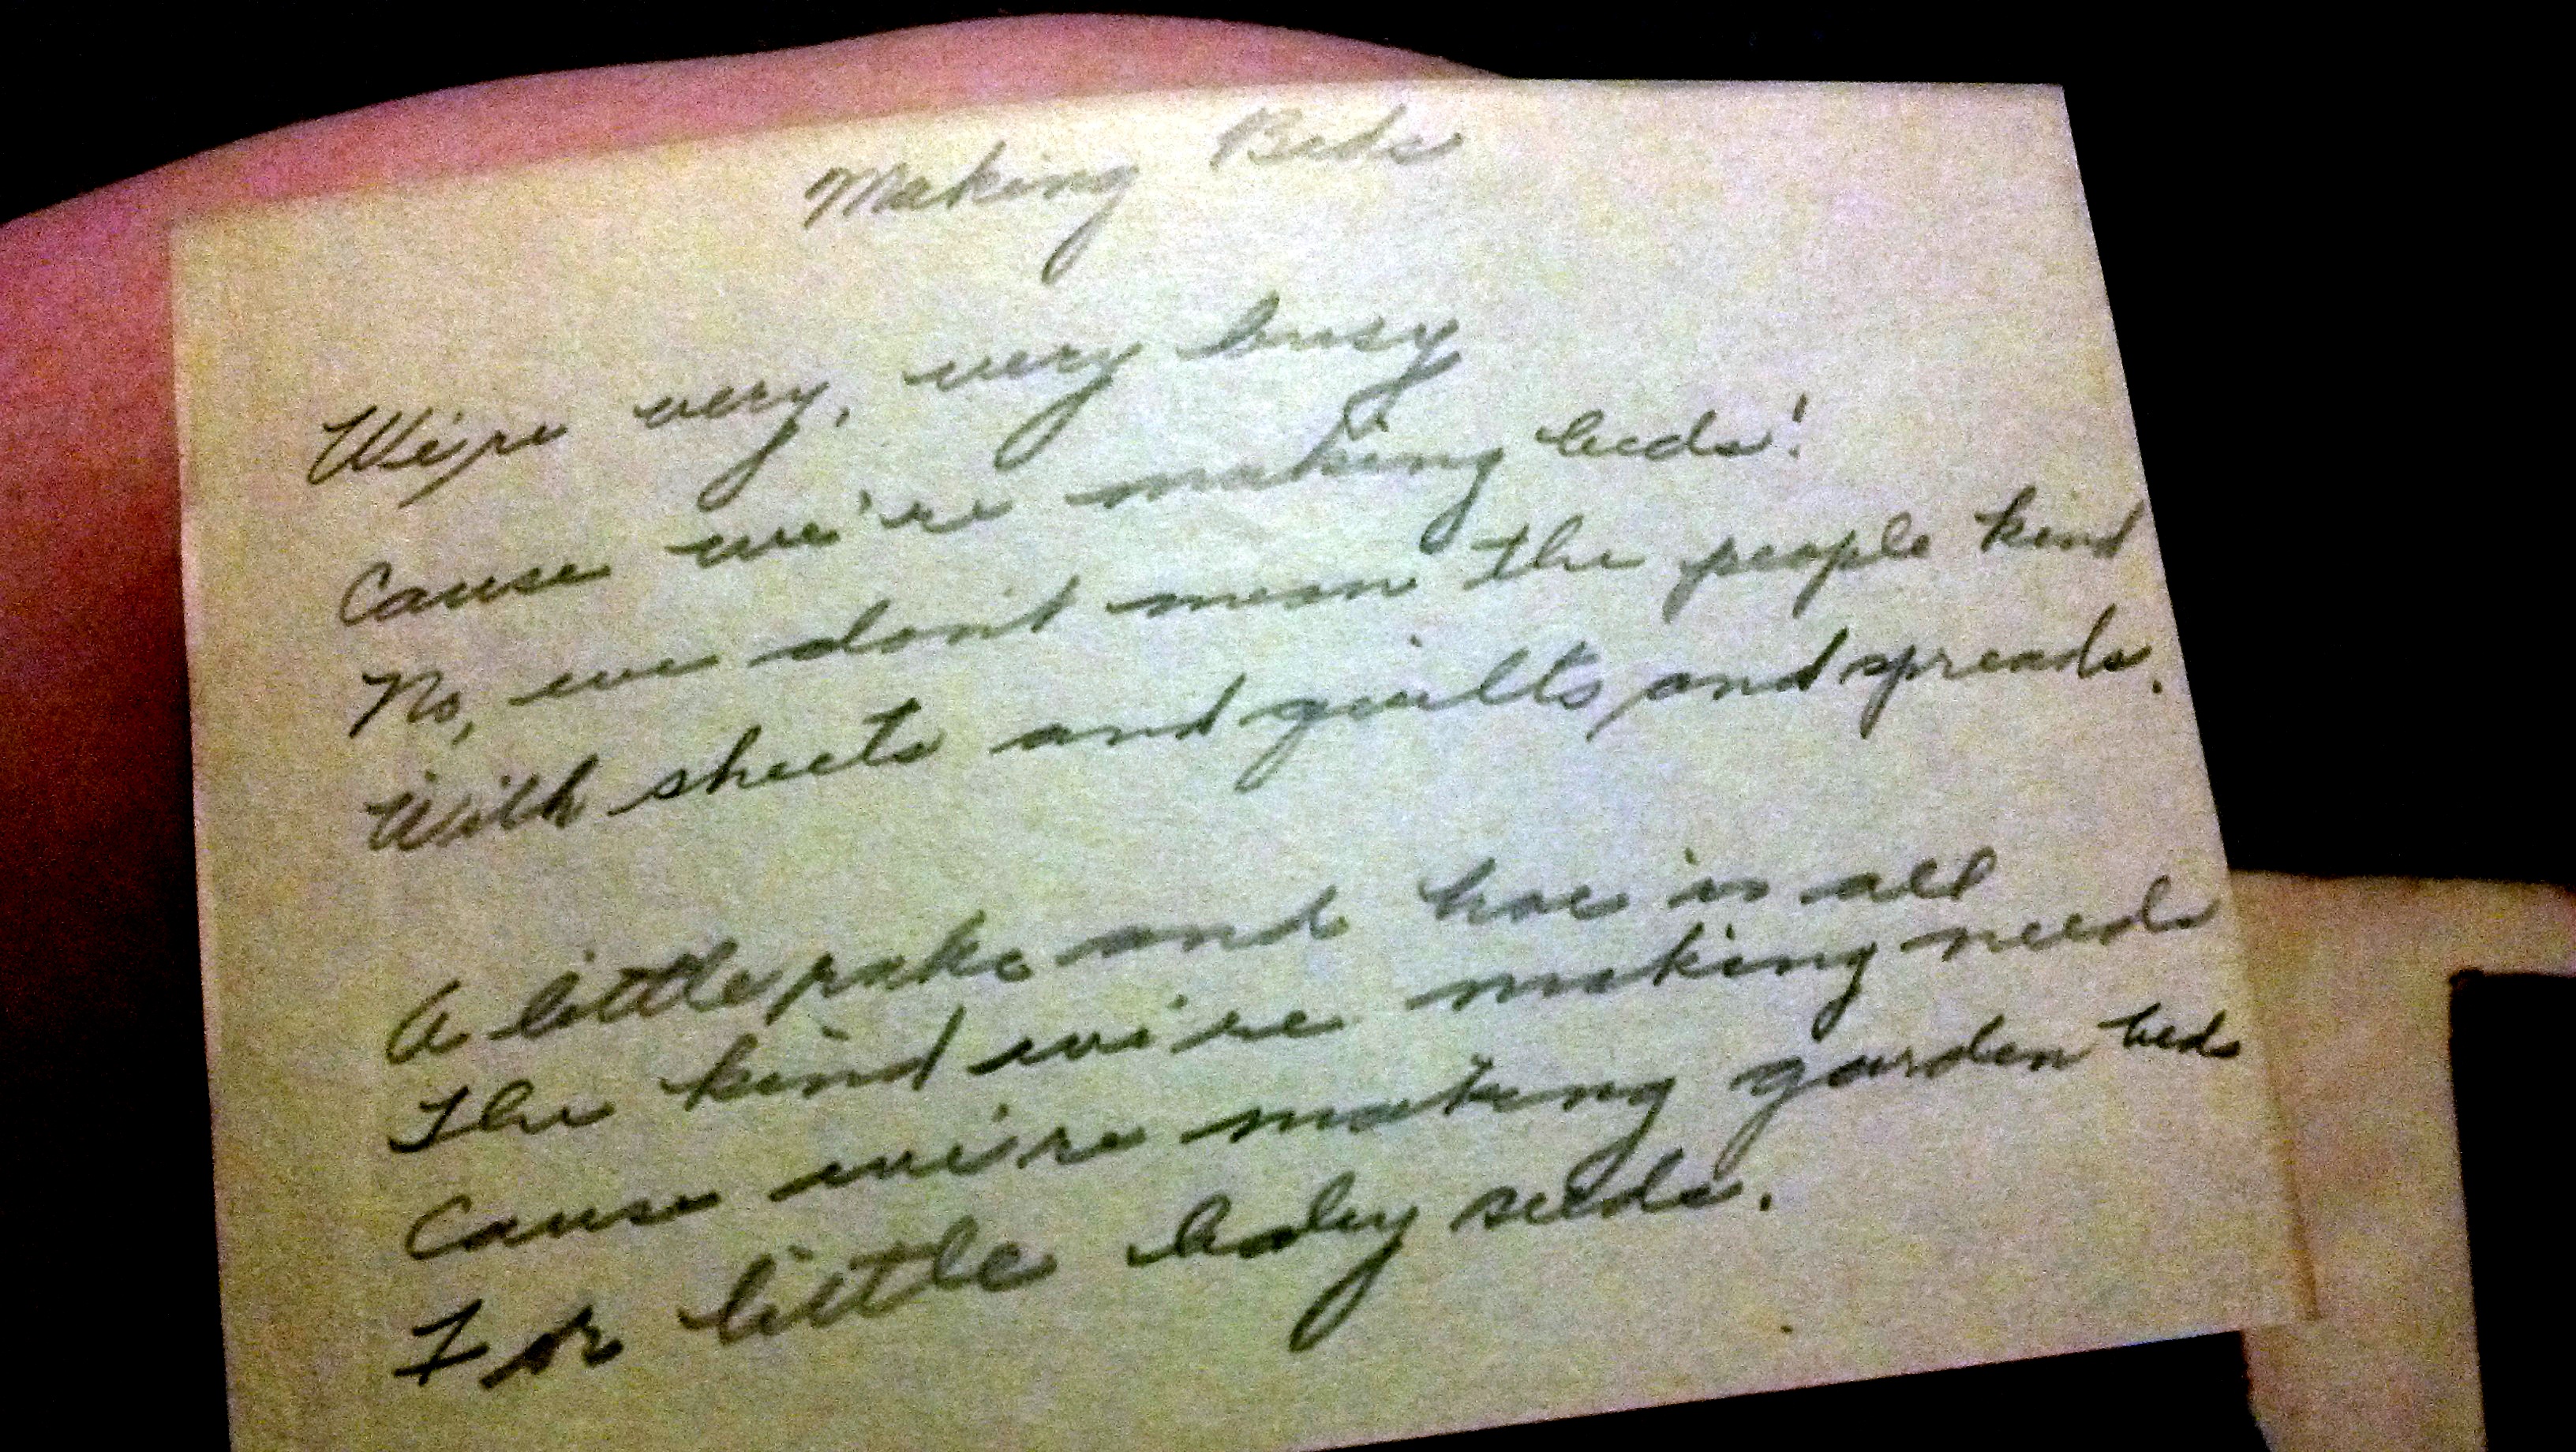 Making Beds
We're very, very busy
Cause we're making beds!
No, we don't mean the people kind
With sheets and quilts, and spreads.
A little rake and hoe is all
The kind we're making needs
Cause we're making garden beds
For little baby seeds.